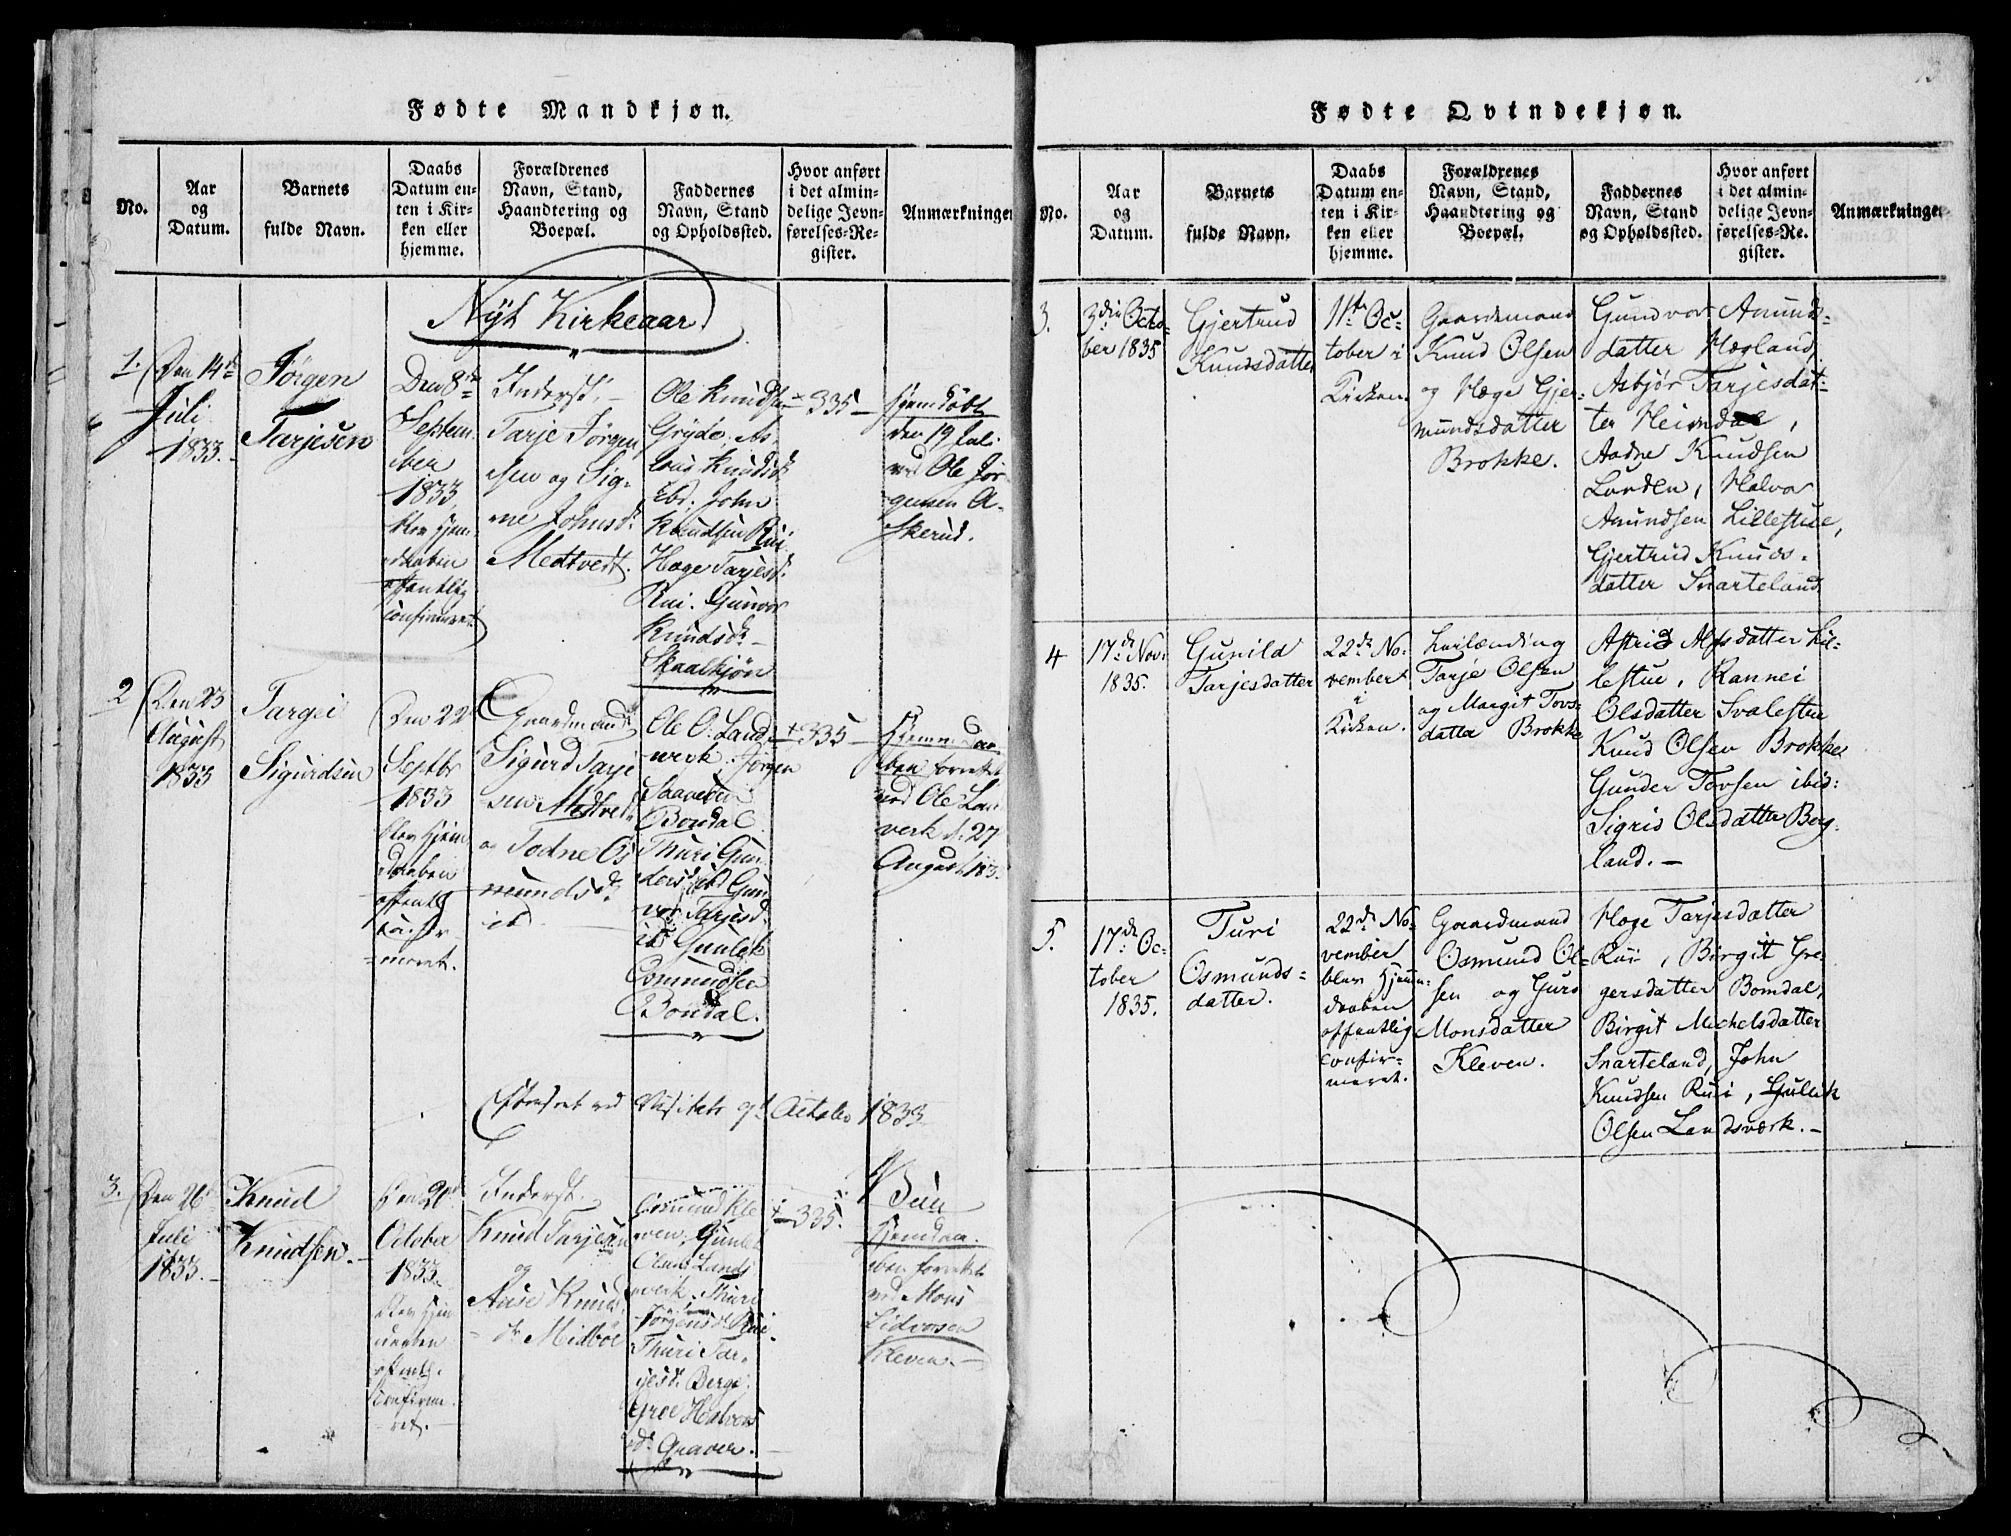 Fødte Mandkjøn.
No.
Aar
og
Datum.
Barnets
fulde Navn.
Daabs
Datum en-
ten i Kir-
ken eller
hjemme.
Forældrenes
Navn, Stand,
Haandtering og
Boepæl.
Faddernes
Navn, Stand
og Opholdssted.
Hvor anført
i det almin-
delige Jevn-
førelses-Re-
gister.
Anmærkninger
Nyt Kirkeaar
1.
Den 14de
Juli
1833.
Jørgen
Tarjesen
Den 8de
Septem-
ber
1833
blev hjem-
daaben
offentlig
confirmeret
Inderst.
Tarje Jørgen-
sen og Sig-
ne Johnsd.
Medtvedt.
Ole Knudsen
Gryde, As-
Knudsd.
Ebd. John
Knudsen Rui
Hæge Tarjesd.
Rui. Gunvor
Knudsd.
Skaalhjøn
335
hjemdøbt
den 19 Juli
ved Ole Jør-
gensen A-
skerud.
2
Den 23
August
1833
Targei
Sigurdsen
Den 22
Septbr
1833
blev hjem
daaben
offentl.
confir-
meret.
Gaardmand
Sigurd Tarje
sen Medtvedt
og Todne Os
mundsd.
ib.
Ole O. Lands-
værk. Jørgen
Saavesen
Bondal
Thuri Gun-
dersd. ibd. Gun
vor Tarjesd.
ib. Gunlek
Osmundsen
Bondal.
335
Hjemmedaa
ben forrettet
ved Ole Lan
verk d. 27
August 183
Eftersret ved Visitats 9d October 1833
3.
Den 26d
Juli
1833.
Knud
Knudsen.
Den 20d
October
1833.
blev hjem
daaben
offentlg.
confirme
ret.
Inderst.
Knud Tarjesen
og
Aase Knuds
dr. Midbøe
Osmund Kle
ven, Gunlek
Olsen Lands
værk. Thuri
Jørgensd. Rui.
Thuri Tar-
jesd. Berge.
Groe Halvors
d. Graver.
335.
Hjemdaa-
ben forrettet
ved Mons
Lidvosen
Kleven.
Fødte Qvindekjøn.
No.
Aar
og
Datum.
Barnets
fulde Navn.
Daabs
Datum en-
ten i Kir-
ken eller
hjemme.
Forældrenes
Navn, Stand,
Haandtering og
Boepæl.
Faddernes
Navn, Stand
og Opholdssted.
Hvor anført
i det almin-
delige Jevn-
førelses-Re-
gister.
Anmærkninger
3.
3die Octo-
ber 1835
Gjertrud
Knudsdatter
11te Oc-
tober i
Kirken.
Gaardmand
Knud Olsen
og Hæge Gjer-
mundsdatter
Brokke.
Gundvor Amunds-
datter Hægland,
Asbjør Tarjesdat-
ter Heimdal,
Aadne Knudsen
Lunden, Halvor
Amundsen Lillestue,
Gjertrud Knuds-
datter Snarteland
4
17de Nov.
1835.
Gunild
Tarjesdatter
22de No-
vember
i
Kirken.
Leilænding
Tarje Olsen
og Margit Tovs-
datter Brokke
Astrid Alfsdatter Lil-
lestue, Rannei
Olsdatter Svalestue
Knud Olsen Brokke
Gunder Tovsen ibid:
Sigrid Olsdatter Berg-
land.
5.
17de Oc-
tober
1835.
Turi
Osmunds-
datter.
22de No-
vember
blev hjem-
daaben
offentlig
confir-
meret.
Gaardmand
Osmund Ol-
sen og Guro
Monsdatter
Kleven.
Hæge Tarjesdatter
Rui, Birgit Gre-
gersdatter Bomdal,
Birgit Michelsdatter
Snarteland, John
Knudsen Rui, Gullik
Olsen Landsværk.